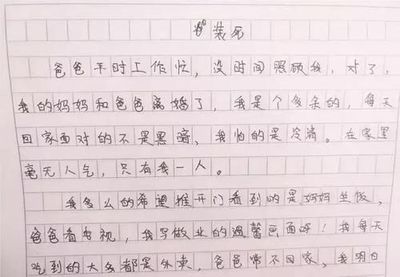 装死
爸爸平时工作忙，没时间照顾我，对了，
我的妈妈和爸爸离婚了，我是个多余的，每天
回家面对的不是黑暗，我怕的是冷清。在家里
毫无人气，只有我一人。
我多么的希望推开门看到的是妈妈坐饭，
爸爸看电视，我写做业的温馨画面呀！我每天
吃到的大多都是外卖，爸爸常不回家，我明白